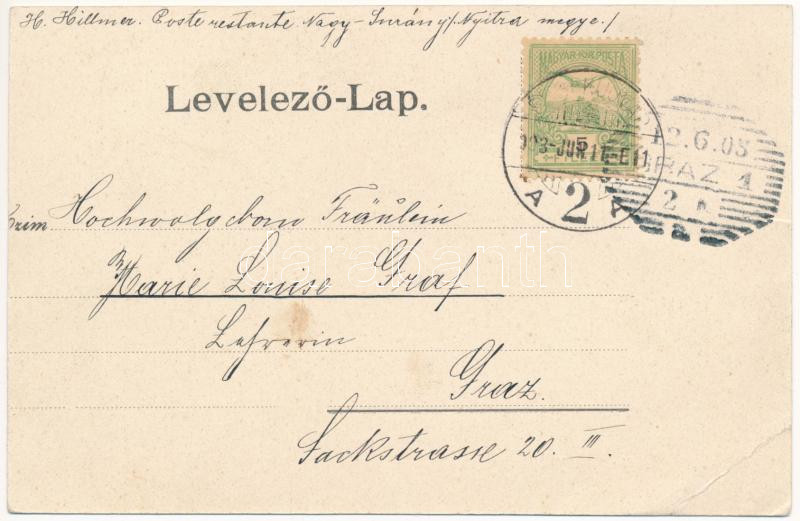 H. Hillmer. Poste restante. Nagy-Surány/Nyitra megye./
MAGYAR KIR. POSTA
Levelező-Lap.
903-JUN 11-E11
A 2 A
12.6.03
GRAZ 1
2
Czim Hochwolgeborn Fräulein
Marie Louise Graf
Lehrerin
Graz.
Sackstrasse 20. III.
darabanth